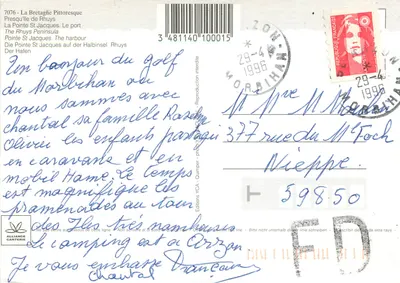 7076 - La Bretagne Pittoresque
Presqu'île de Rhuys
La Pointe St Jacques, Le port
The Rhuys Peninsula
Pointe St Jacques. The harbour
Die Pointe St Jacques auf der Halbinsel Rhuys
Der Hafen
3 481140 100015
ZON-MORBIHAN
29-4
1996
MORBIHAN
29-4
1996
Un bonjour du golf
du Morbihan ou
nous sommes avec
chantal sa famille
Olivier les enfants
en caravane et en
mobil Hame, le temps
est magnifique les
promenades au tour
des Iles très nombreuses
Le camping est a Arzon
Je vous embrasse
Chantal Françoise
M Mme M
377 rue du Mal Foch
Nieppe
59850
T
FD
ALLIANCE
CARTERIE